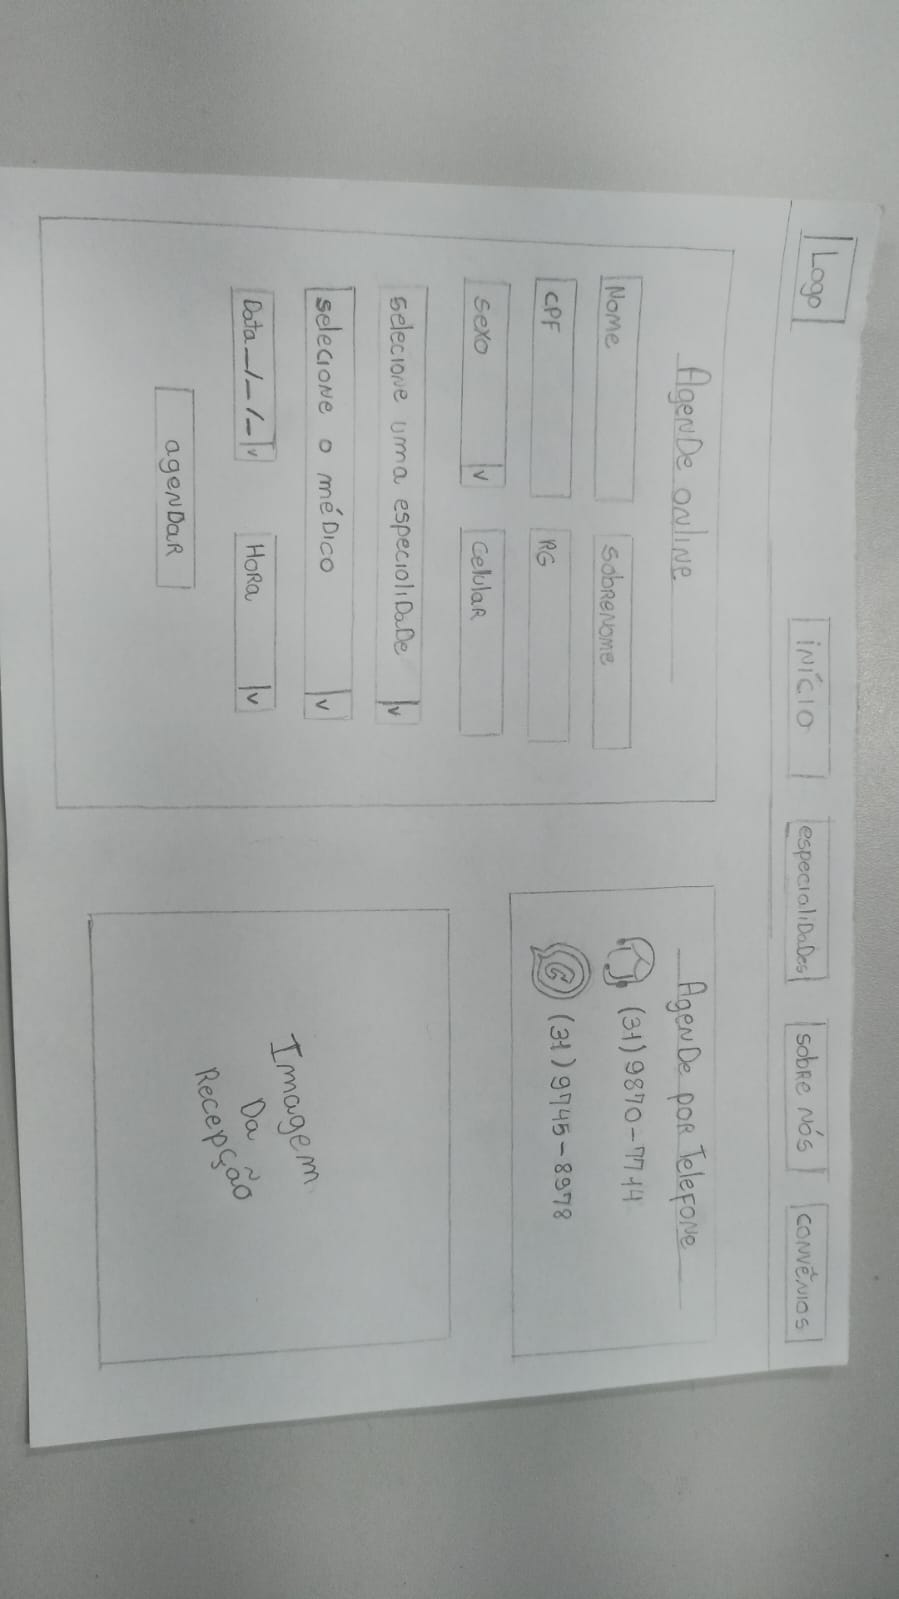 Logo
INÍCIO
especialiDaDes
SobRe Nós
CONVÊNIOS
AgenDe ONlINe
Nome
SobReNome
CPF
RG
Sexo v
CelulaR
Selecione uma especialiDaDe v
Selecione o méDico v
Data _/_/_ v
HoRa v
ageNDaR
AgenDe poR TeleFoNe
(31) 9870-7714
(31) 9745-8978
Imagem
Da
Recepção